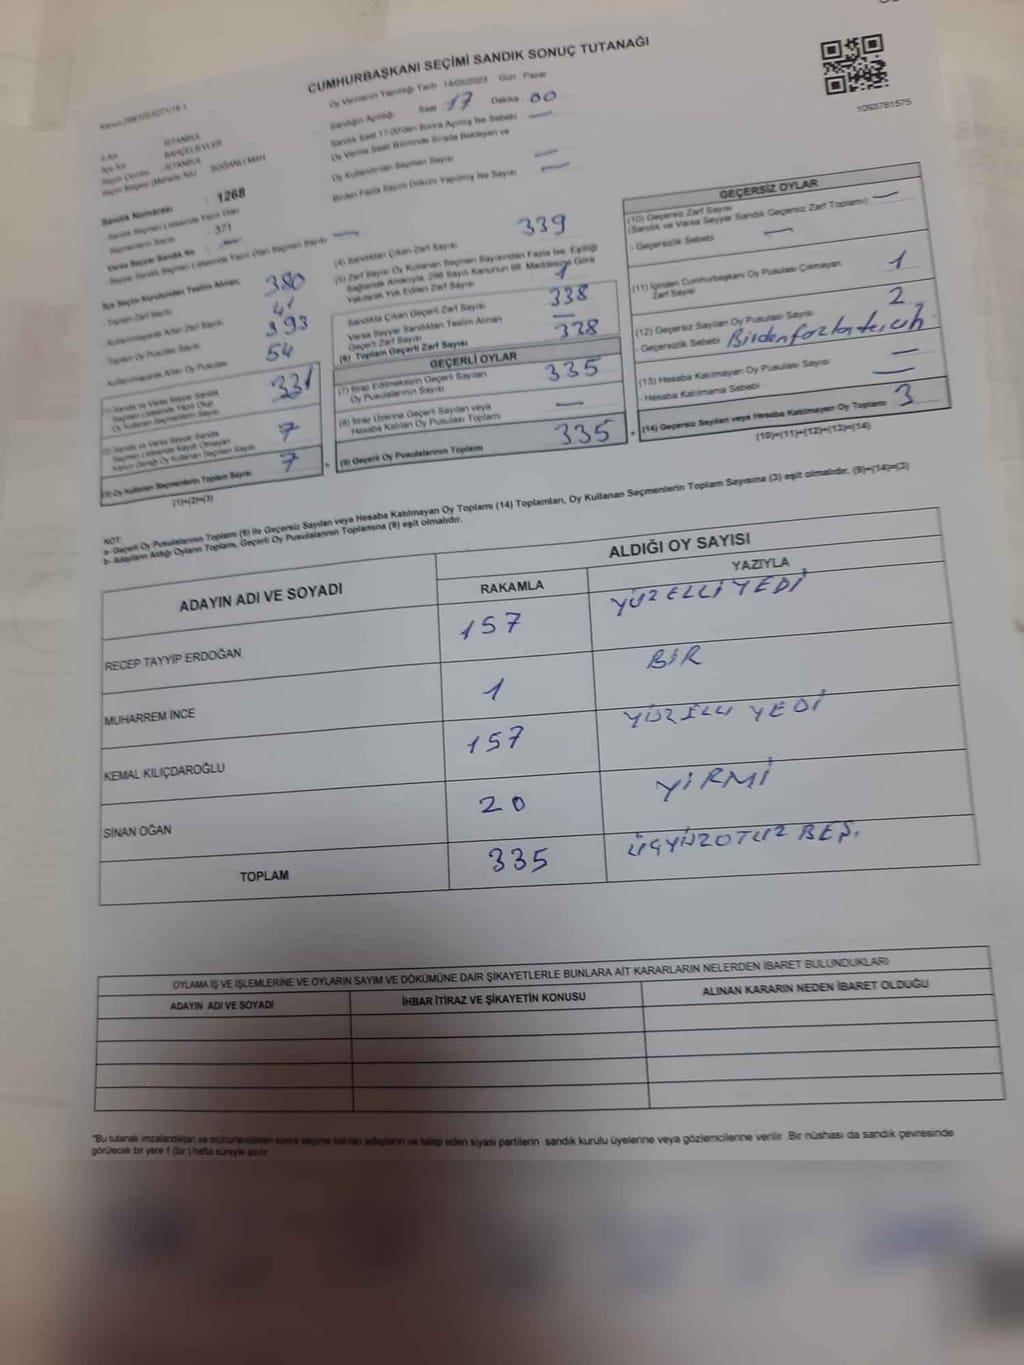 CUMHURBAŞKANI SEÇİMİ SANDIK SONUÇ TUTANAĞI
Oy Vermenin Yapıldığı Tarih :14/05/2023 Gün : Pazar
Sandığın Açıldığı Saat 17 Dakika 00
Sandık Saat 17:00'den Sonra Açılmış İse Sebebi —
Oy Verme Saati Bitiminde Sırada Bekleyen ve
Oy Kullandırılan Seçmen Sayısı —
Birden Fazla Sayım Döküm Yapılmış İse Sayısı —
1093781575
İSTANBUL
BAHÇELİEVLER
İSTANBUL
SOĞANLI MAH.
Sandık Numarası : 1268
Sandık Seçmen Listesinde Yazılı Olan
Seçmenlerin Sayısı : 371
Varsa Seyyar Sandık No : —
Seyyar Sandık Seçmen Listesinde Yazılı Olan Seçmen Sayısı —
İlçe Seçim Kurulundan Teslim Alınan;
- Toplam Zarf Sayısı 380
- Kullanılmayarak Artan Zarf Sayısı 41
- Toplam Oy Pusulası Sayısı 393
- Kullanılmayarak Artan Oy Pusulası 54
(1) Sandık ve Varsa Seyyar Sandık
Seçmen Listesinde Yazılı Olup
Oy Kullanan Seçmenlerin Sayısı 331
(2) Sandık ve Varsa Seyyar Sandık
Seçmen Listesinde Kayıtlı Olmayan
Kanun Gereği Oy Kullanan Seçmen Sayısı 7
(3) Oy Kullanan Seçmenlerin Toplam Sayısı 7
(1)+(2)=(3)
(4) Sandıktan Çıkan Zarf Sayısı 339
(5) Zarf Sayısı Oy Kullanan Seçmen Sayısından Fazla İse, Eşitliği
Sağlamak Amacıyla, 298 Sayılı Kanunun 98. Maddesine Göre
Yakılarak Yok Edilen Zarf Sayısı 1
Sandıkta Çıkan Geçerli Zarf Sayısı 338
Varsa Seyyar Sandıktan Teslim Alınan
Geçerli Zarf Sayısı —
(6) Toplam Geçerli Zarf Sayısı 338
GEÇERLİ OYLAR
(7) İtiraz Edilmeksizin Geçerli Sayılan
Oy Pusulalarının Sayısı 335
(8) İtiraz Üzerine Geçerli Sayılan veya
Hesaba Katılan Oy Pusulası Toplamı —
(9) Geçerli Oy Pusulalarının Toplamı 335
GEÇERSİZ OYLAR
(10) Geçersiz Zarf Sayısı
(Sandık ve Varsa Seyyar Sandık Geçersiz Zarf Toplamı) —
- Geçersizlik Sebebi —
(11) İçinden Cumhurbaşkanı Oy Pusulası Çıkmayan
Zarf Sayısı 1
(12) Geçersiz Sayılan Oy Pusulası Sayısı 2
- Geçersizlik Sebebi Birden fazla tercih
(13) Hesaba Katılmayan Oy Pusulası Sayısı —
- Hesaba Katılmama Sebebi —
(14) Geçersiz Sayılan veya Hesaba Katılmayan Oy Toplamı 3
(10)+(11)+(12)+(13)=(14)
NOT:
a- Geçerli Oy Pusulalarının Toplamı (9) ile Geçersiz Sayılan veya Hesaba Katılmayan Oy Toplamı (14) Toplamları, Oy Kullanan Seçmenlerin Toplam Sayısına (3) eşit olmalıdır. (9)+(14)=(3)
b- Adayların Aldığı Oyların Toplamı, Geçerli Oy Pusulalarının Toplamına (9) eşit olmalıdır.
ADAYIN ADI VE SOYADI ALDIĞI OY SAYISI
RAKAMLA YAZIYLA
RECEP TAYYİP ERDOĞAN 157 YÜZ ELLİ YEDİ
MUHARREM İNCE 1 BİR
KEMAL KILIÇDAROĞLU 157 YÜZ ELLİ YEDİ
SİNAN OĞAN 20 YİRMİ
TOPLAM 335 ÜÇYÜZOTUZ BEŞ.
OYLAMA İŞ VE İŞLEMLERİNE VE OYLARIN SAYIM VE DÖKÜMÜNE DAİR ŞİKAYETLERLE BUNLARA AİT KARARLARIN NELERDEN İBARET BULUNDUKLARI
ADAYIN ADI VE SOYADI İHBAR İTİRAZ VE ŞİKAYETİN KONUSU ALINAN KARARIN NEDEN İBARET OLDUĞU
*Bu tutanak imzalandıktan ve mühürlendikten sonra seçime katılan adayların ve talep eden siyasi partilerin sandık kurulu üyelerine veya gözlemcilerine verilir. Bir nüshası da sandık çevresinde
görülecek bir yere 1 (bir) hafta süreyle asılır.